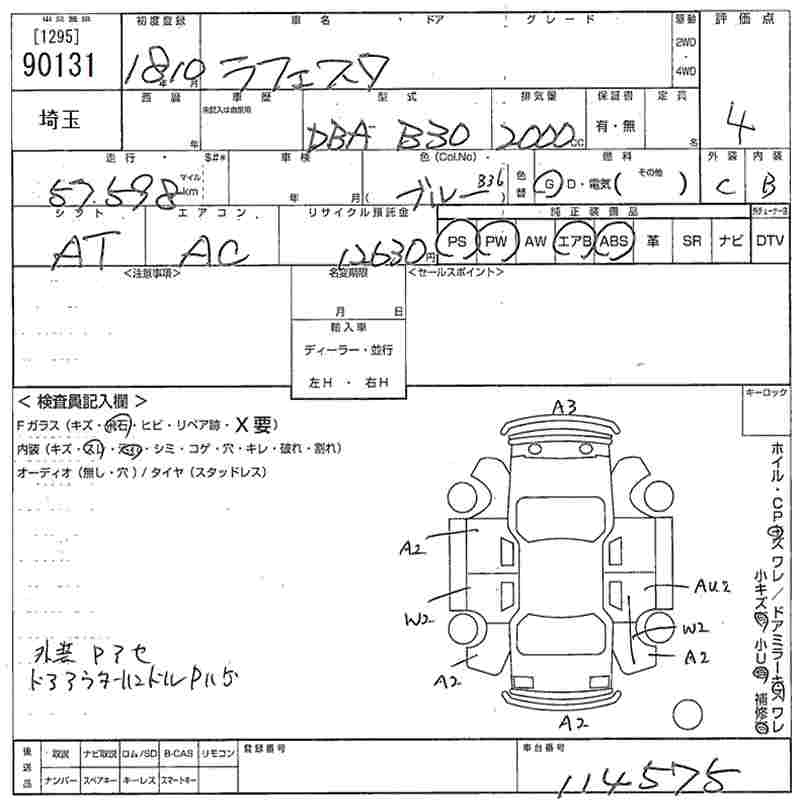 [1295]
90131
初度登録 車名 ドア グレード 駆動 評価点
1810 年 月 ラフェスタ 2WD・4WD
埼玉
西暦 車歴 型式 排気量 保証書 定員
年 DBA B30 2000cc 有・無 名 4
走行 S#* 車検 色(Col.No) 燃料 外装 内装
57.598 マイル km 年 月 ( ブルー B36 ) 色替 G D・電気( その他 ) C B
シフト エアコン リサイクル預託金 純正装備品
AT AC 12630円 PS PW AW エアB ABS 革 SR ナビ DTV
<注意事項> 名変期限 <セールスポイント>
月 日
輸入車
ディーラー・並行
左H ・ 右H
< 検査員記入欄 > キーロック
Fガラス(キズ・飛石・ヒビ・リペア跡・X要)
内装(キズ・スレ・ シミ・コゲ・穴・キレ・破れ・割れ)
オーディオ(無し・穴)/タイヤ(スタッドレス)
A3
A2
W2
A2
AU2
W2
A2
A2
ホイル・CPキズ ワレ/ドアミラーキズ ワレ
小キズ 小U 補修
外装 Pアセ
後送品 取説 ナビ取説 ロム/SD B-CAS リモコン 登録番号 車台番号
ナンバー スペアキー キーレス スマートキー 114575